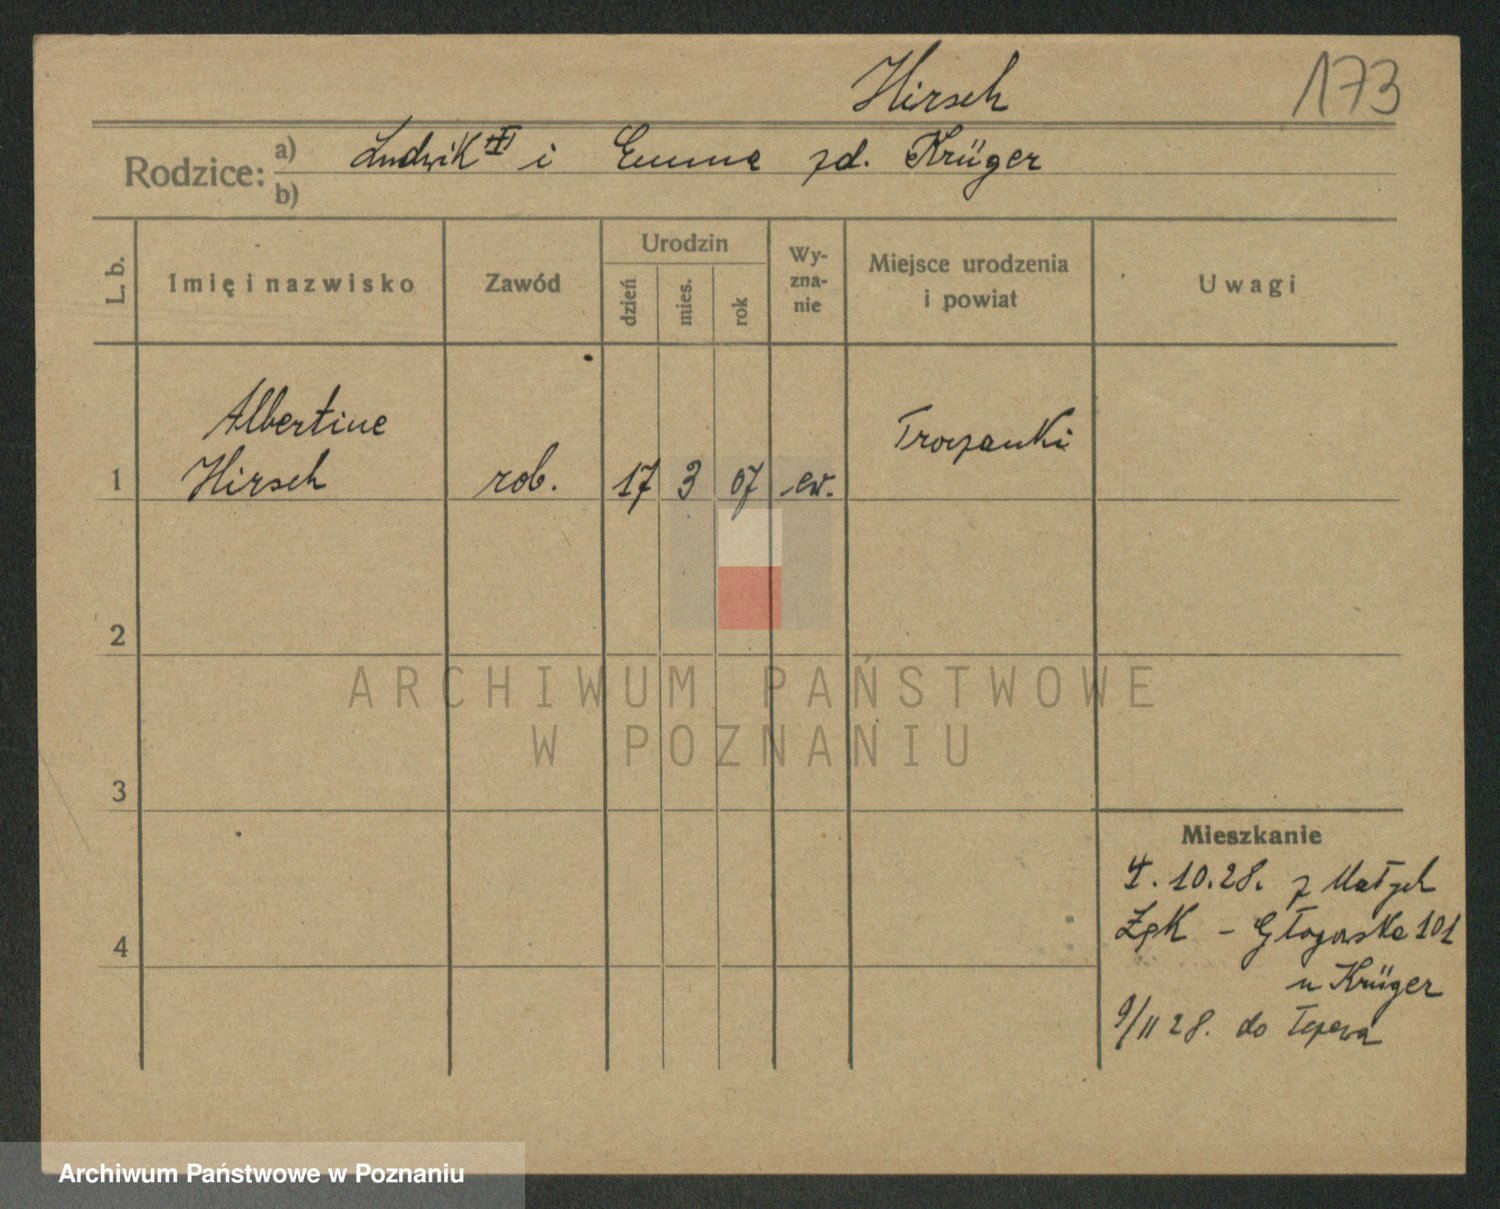 Hirsch 173
Rodzice: a) Ludwik i Emma zd. Krüger
b)
L. b. Imię i nazwisko Zawód Urodzin dzień mies. rok Wy-zna-nie Miejsce urodzenia i powiat Uwagi
Albertine
1 Hirsch rob. 17 3 07 ew. Troszanki
2
ARCHIWUM PAŃSTWOWE
W POZNANIU
3
Mieszkanie
4.10.28. z Małych
4
- Głogowska 101
u Krüger
9/11 28. do
Archiwum Państwowe w Poznaniu